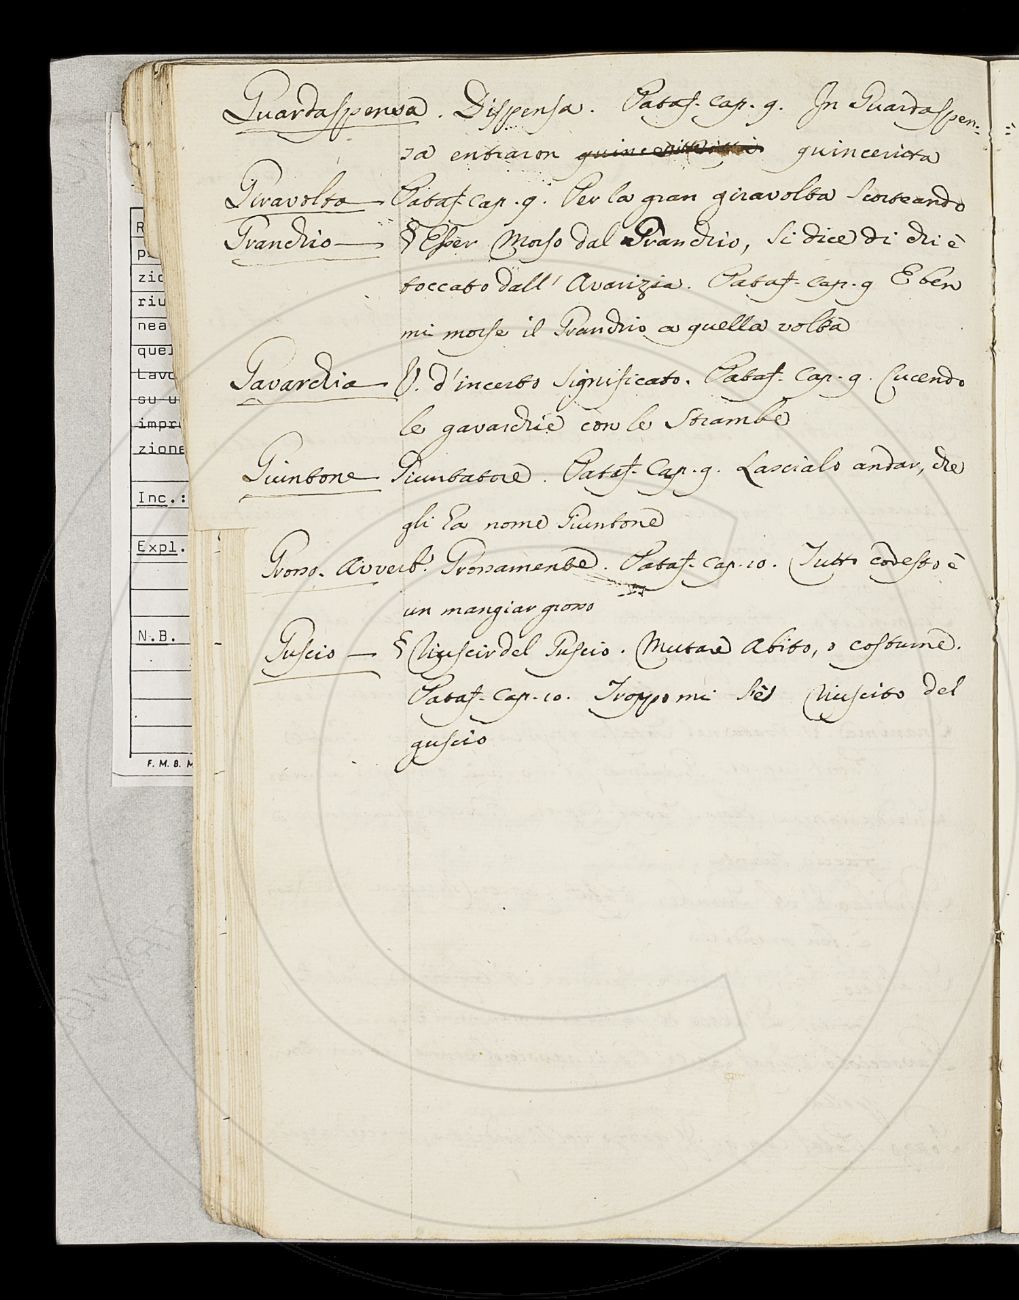 Guardaspensa. Dispensa. Pataf. cap. 9. In Guardaspen-
sa entraron quincericta
Giravolta Pataf. cap. 9. Per la gran giravolta Scorteando
Granchio — § Esser Morso dal Granchio, Si dice di chi è
toccato dall' Avarizia. Pataf. cap. 9 E ben
mi morse il Granchio a quella volta
Gavarchia V. d'incerto Significato. Pataf. Cap. 9. Cucendo
le gavarchie con le Strambe
Giuntone Giuntatore. Pataf. Cap. 9. Lascialo andar, che
gli ha nome Giuntone
Grosso. Avverb. Grossamente. Pataf. Cap. 10. Tutto codesto è
un mangiar grosso
Guscio — § Riuscir del Guscio. Mutare Abito, o costume.
Pataf. Cap. 10. Troppo mi Riuscito del
guscio
R
p
zio
riu
nea
quel
Lavo
su u
impr
zione
Inc.:
Expl.
N.B.
F. M. B. M